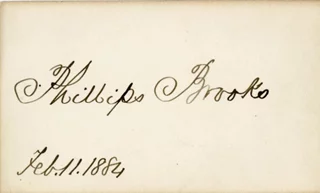 Phillips Brooks
Feb. 11. 1884